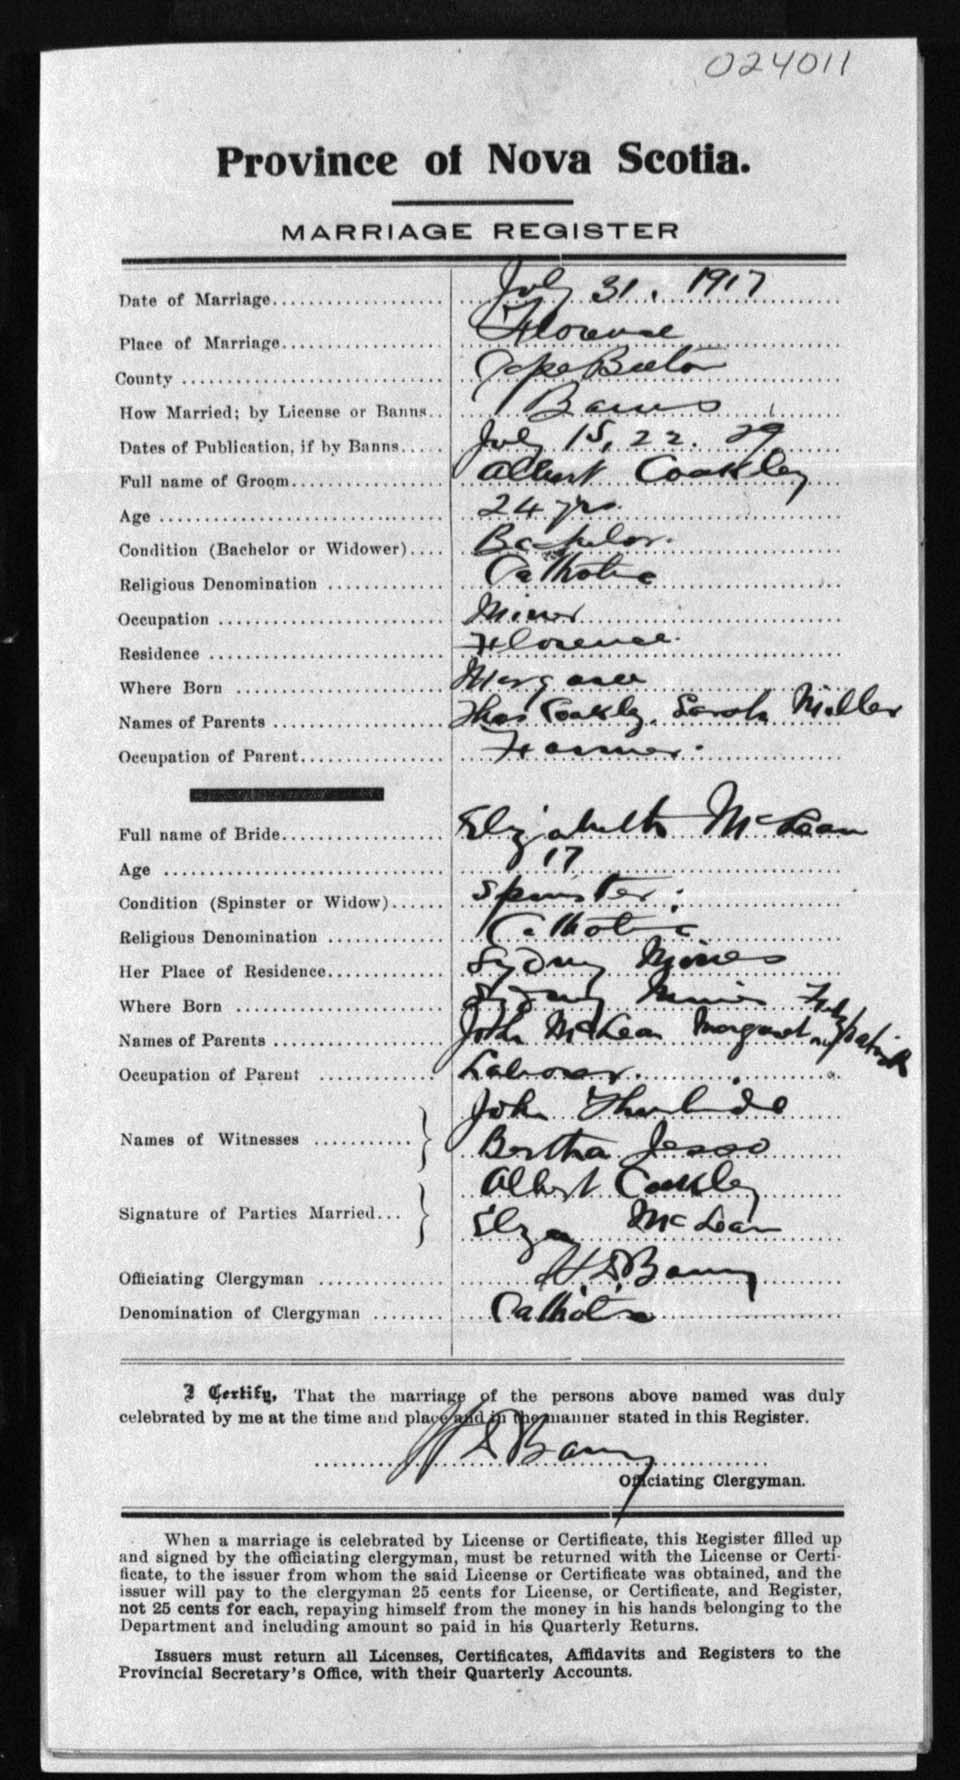 024011
Province of Nova Scotia.
MARRIAGE REGISTER
Date of Marriage.................... July 31. 1917
Place of Marriage................... Florence
County .............................. Cape Breton
How Married; by License or Banns.. Banns
Dates of Publication, if by Banns..... July 15, 22. 29
Full name of Groom.................. Albert Coakley
Age ................................. 24 yrs.
Condition (Bachelor or Widower).... Bachelor.
Religious Denomination .............. Catholic
Occupation .......................... Miner
Residence ........................... Florence.
Where Born ......................... Margaree
Names of Parents .................... Thos Coakley. Sarah Miller
Occupation of Parent................. Farmer.
Full name of Bride................... Elizabeth McLean
Age ................................. 17
Condition (Spinster or Widow)...... Spinster.
Religious Denomination .............. Catholic
Her Place of Residence.............. Sydney Mines
Where Born ......................... Sydney Mines
Names of Parents .................... John McLean Margaret Fitzpatrick
Occupation of Parent ............... Laborer.
Names of Witnesses ............ } John
Bertha Jesso
Signature of Parties Married... } Albert Coakley
Eliza McLean
Officiating Clergyman ............... H.D. Barry
Denomination of Clergyman ........ Catholic
I Certify, That the marriage of the persons above named was duly
celebrated by me at the time and place and in the manner stated in this Register.
H D Barry
Officiating Clergyman.
When a marriage is celebrated by License or Certificate, this Register filled up
and signed by the officiating clergyman, must be returned with the License or Certi-
ficate, to the issuer from whom the said License or Certificate was obtained, and the
issuer will pay to the clergyman 25 cents for License, or Certificate, and Register,
not 25 cents for each, repaying himself from the money in his hands belonging to the
Department and including amount so paid in his Quarterly Returns.
Issuers must return all Licenses, Certificates, Affidavits and Registers to the
Provincial Secretary's Office, with their Quarterly Accounts.